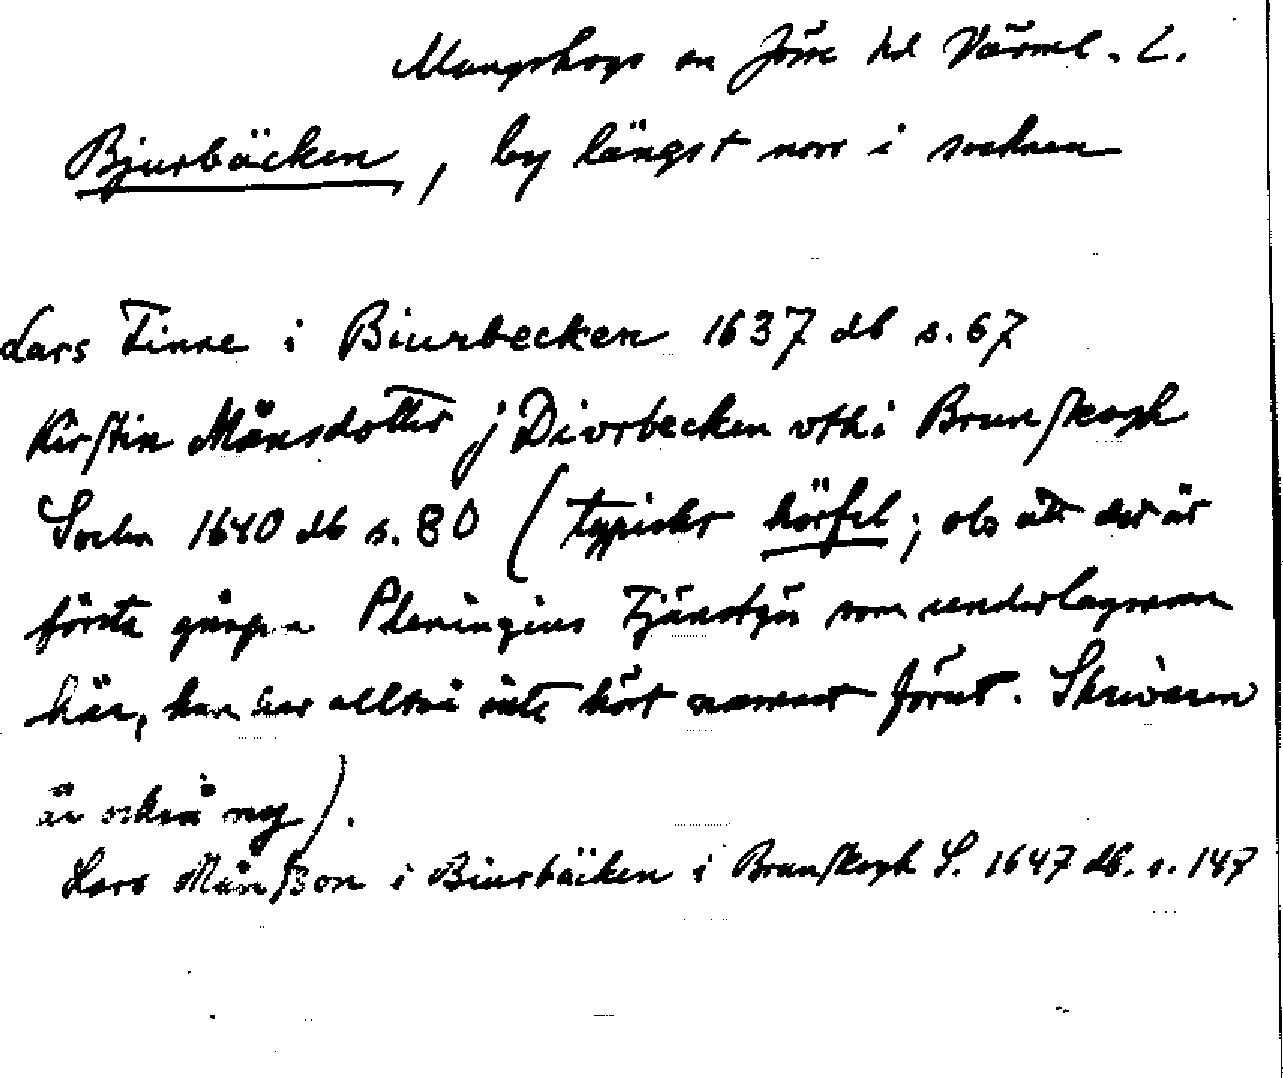 Mangskogs sn Jösse hd Värml. L.
Bjurbäcken, by längst norr i socknen
Lars Finne i Biurbecken 1637 db s. 67
Kirstin Månsdotter j Divrbecken vthi Brunskogh
Sochn 1640 db s. 80 (typiskt hörfel; obs att det är
första gången Pheningius tjänstgör som underlagman
här, han har alltså inte hört namnet förut. Skrivaren
är också ny).
Lars Månsson i Biurbäcken i Brunskogh S. 1647 db. s. 147